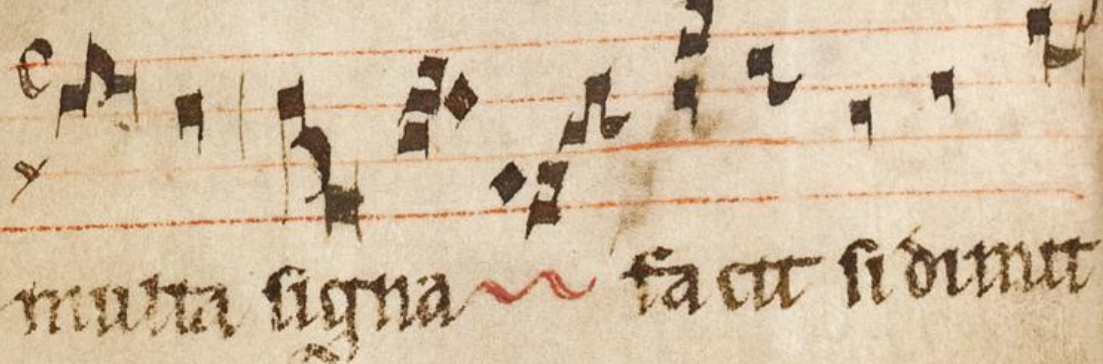 multa signa facit si dimit